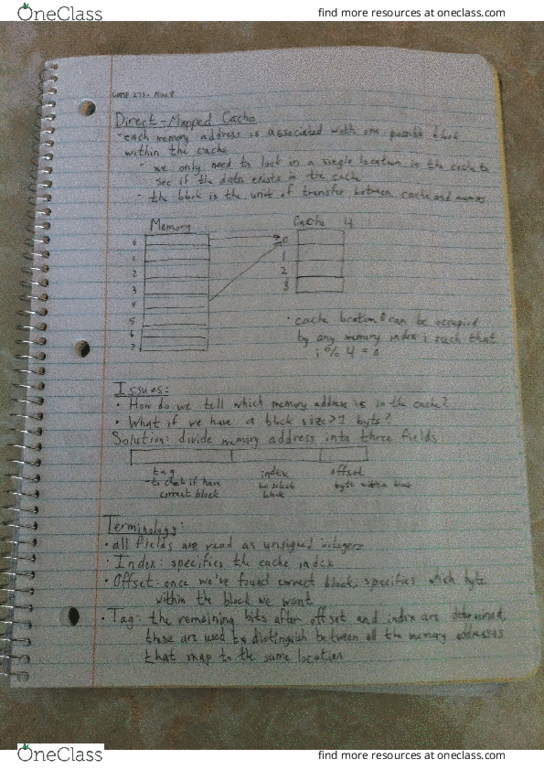 OneClass
find more resources at oneclass.com
Direct-Mapped Cache
- each memory address is associated with one possible block
within the cache
- we only need to look in a single location in the cache to
see if the data exists in the cache
- the block is the unit of transfer between cache and
Memory
Cache 4
0
1
2
3
4
5
6
7
0
1
2
3
• cache location 0 can be occupied
by any memory index i such that
i % 4 = 0
Issues:
• How do we tell which memory address is in the cache?
• What if we have a block size > 1 byte?
Solution: divide memory address into three fields
tag
index
offset
to check if have
to select
byte within block
correct block
block
Terminology:
• all fields are read as unsigned integers
• Index: specifies the cache index
• Offset: once we've found correct block, specifies which byte
within the block we want
• Tag: the remaining bits after offset and index are determined,
these are used to distinguish between all the memory addresses
that map to the same location
OneClass
find more resources at oneclass.com